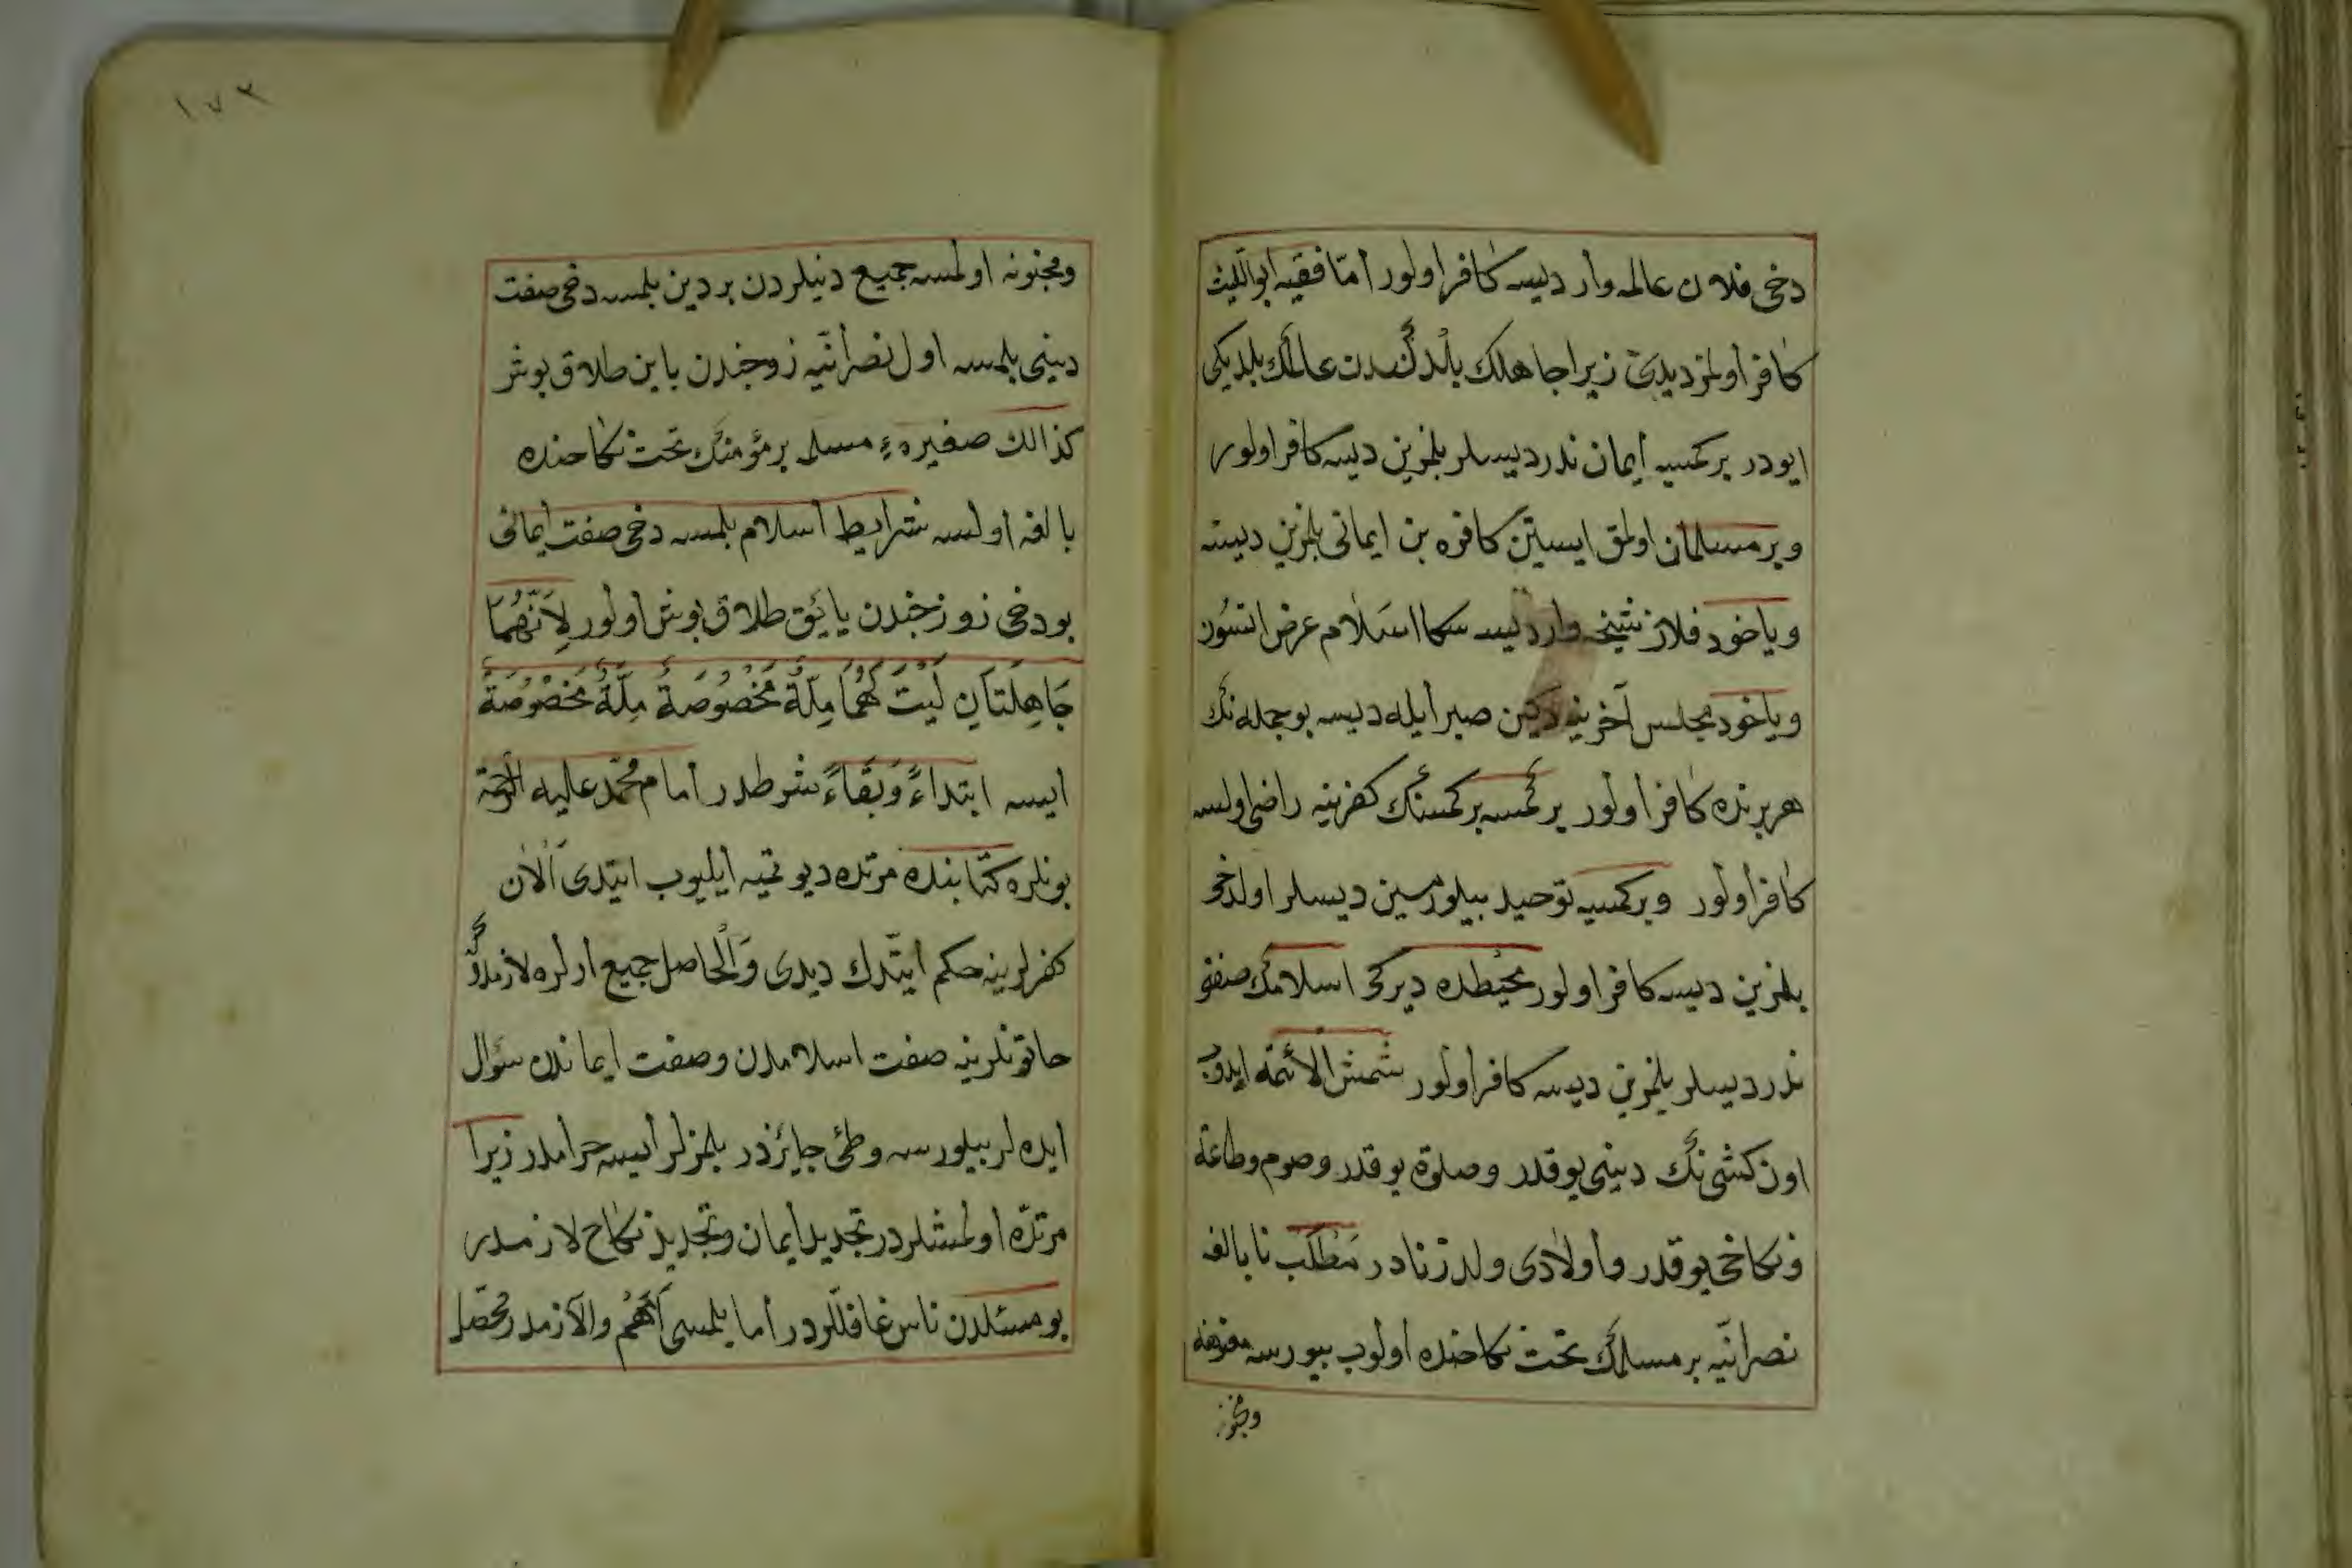 دخى فلان عالمه وار ديسه كافر اولور امّا فقيه ابو اللّيث
كافر اولمز ديدى زيرا جاهلك بلدكندن عالمك بلديكى
ايودر بر كمسيه ايمان ندر ديسلر بلمزين ديسه كافر اولور
وبر مسلمان اولمق ايستين كافره بن ايمانى بلمزين ديسه
وياخود فلان شيخه وار ديسه سكا اسلام عرض اتسون
وياخود مجلس آخرينه دكين صبر ايله ديسه بو جمله نك
هر برنده كافر اولور بر كمسه بر كمسنك كفرينه راضى اولسه
كافر اولور وبر كمسيه توحيد بيلورمسين ديسلر اولدخى
بلمزين ديسه كافر اولور محيطده ديركى اسلامك صفتى
ندر ديسلر بلمزين ديسه كافر اولور شمش الائمة ايدوب
اون كشى نك دينى يوقدر وصلوة يوقدر وصوم وطاعة
ونكاحى يوقدر واولادى ولد زنادر مطلب نابالغه
نصرانيّه بر مسلمك تحت نكاحنده اولوب بيورسه معتوهه
ومجنونه
١٧٣
ومجنونه اولمسه جميع دنيلردن بر دين بلمسه دخى صفت
دينى بلمسه اول نصرانيّه زوجندن باين طلاق بوشر
كذالك صغيرهء مسلمه بر مؤمنك تحت نكاحنده
بالغه اولسه شرايط اسلام بلمسه دخى صفت ايمانى
بودخى زوزجندن يائق طلاق بوش اولور لِاَنَّهُمَا
جَاهِلَتَانِ لَيْتَ لَهُمَا مِلَّةٌ مَخْصُوصَةٌ مِلَّةٌ مَخْصُوصَةٌ
ايسه ابتداءً وَبَقَاءً شرطدر امام محمّد عليه الرحمة
بونلره كتابنده مرتده ديو تميه ايليوب ايتدى اَلْاٰن
كفرلرينه حكم ايتدك ديدى وَالْحاصل جميع ارلره لازمدركه
حاتونلرينه صفت اسلامدن وصفت ايماندن سؤال
ايده لر بيلورسه وطئ جايزدر بلمزلر ايسه حرامدر زيرا
مرتدّه اولمشلردر تجديد ايمان وتجديد نكاح لازمدر
بو مسئلدن ناس غافللردر اما بلمسى اَهَمُّ والازمدر محصّل